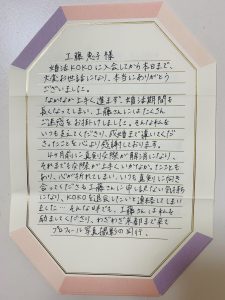 工藤 恵子 様
婚活KOKOに入会してから本日まで、
大変お世話になり、本当にありがとう
ございました。
なかなか上手く進まず、婚活期間も
長くなってしまい、工藤さんにはたくさん
ご迷惑をお掛けしました。そんな私を
いつも支えてくださり、成婚まで導いてくだ
さったこと心より感謝しております。
4ヶ月前に真剣交際が解消になり、
それまでも交際が上手くいかなかったことも
あり、心が折れてしまい、いつも真剣に向き
合ってくださる工藤さんに申し訳ない気持ち
になり、KOKOを退会したいと連絡してしまい
ました…そんな時でも、工藤さんは私を
励ましてくださり、わざわざ京都まで来て
プロフィール写真撮影の同行、